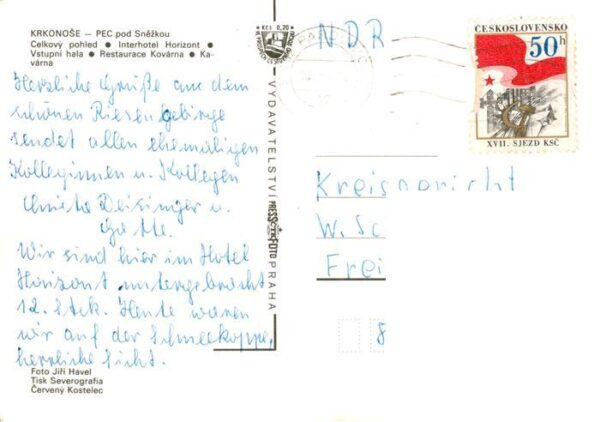 KRKONOŠE — PEC pod Sněžkou
Celkový pohled ● Interhotel Horizont ●
Vstupní hala ● Restaurace Kovárna ● Ka-
várna
Herzliche Grüße aus dem
schönen Riesengebirge
sendet allen ehemaligen
Kolleginnen u. Kollegen
Christa Deisinger u.
Gatte.
Wir sind hier im Hotel
Horizont untergebracht
12. Stck. Heute waren
wir auf der Schneekoppe,
herrliche Sicht.
Foto Jiří Havel
Tisk Severografia
Červený Kostelec
Kčs 0,20
VYDAVATELSTVÍ PRESSFOTO PRAHA
NDR
ČESKOSLOVENSKO
50h
XVII. SJEZD KSČ
Kreisgericht
W. Sc
Frei
8